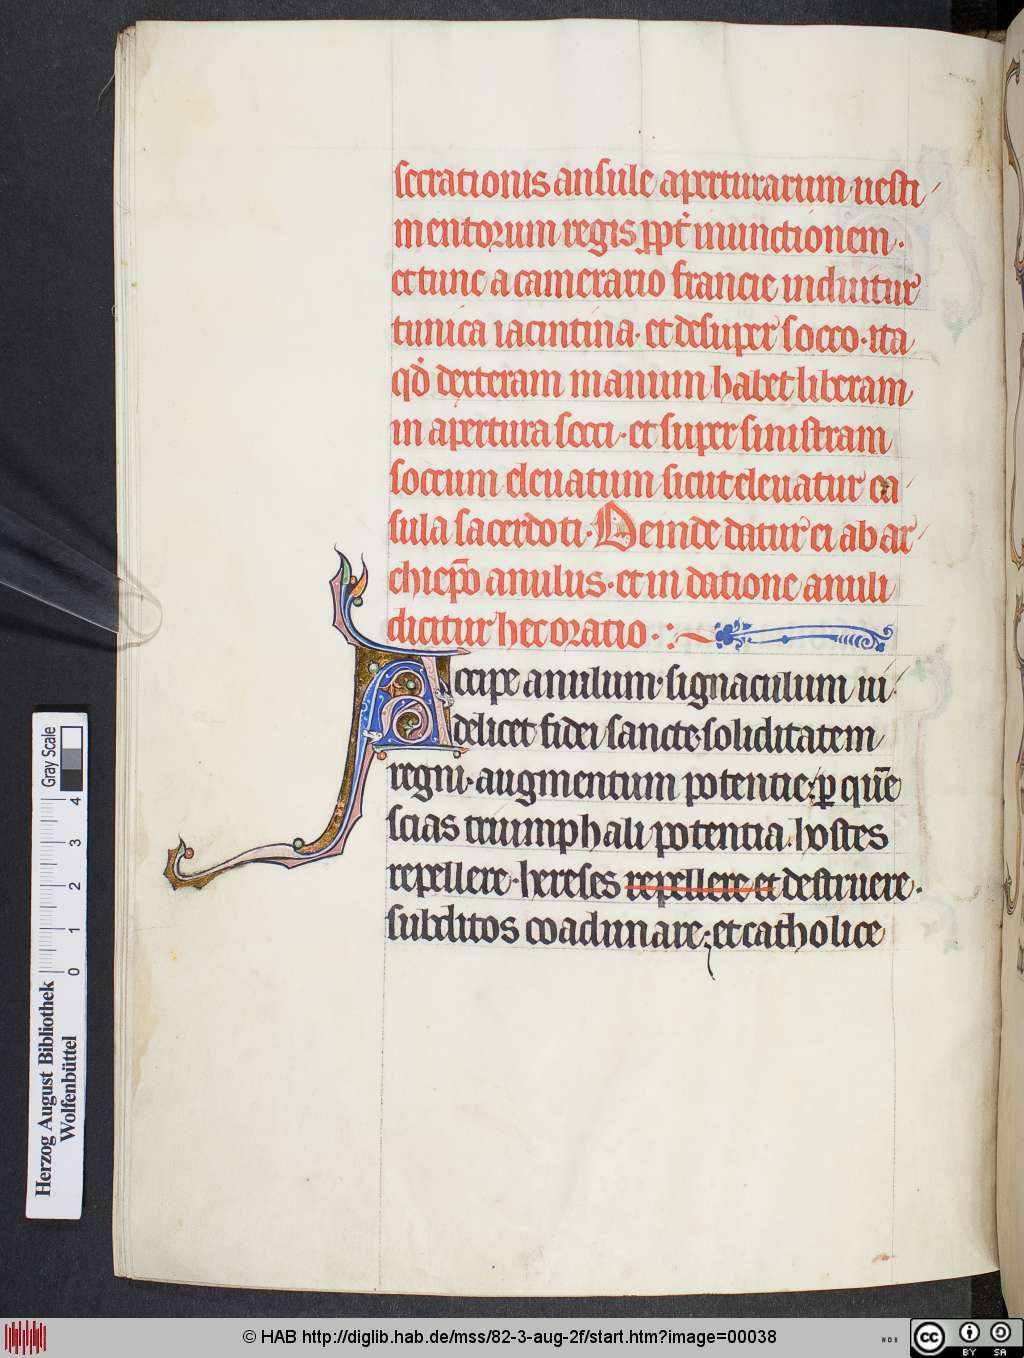 secrationis ansule aperturarum uesti
mentorum regis ꝓpt̉ inunctionem·
et tunc a camerario francie induitur
tunica iacintina· et desuper socco· ita
qd̉ dexteram manum habet liberam
in apertura socci· et super sinistram
soccum eleuatum sicut eleuatur ca
sula sacerdoti· Deinde datur ei ab ar
chiep̄o anulus· et in datione anuli
dicitur hec oratio·
Accipe anulum· signaculum ui
delicet fidei sancte· soliditatem
regni· augmentum potentie; ꝑ que̅
scias triumphali potentia hostes
repellere· hereses repellere et destruere·
subditos coadunare; et catholice
Herzog August Bibliothek
Wolfenbüttel
0 1 2 3 4
Gray Scale
© HAB http://diglib.hab.de/mss/82-3-aug-2f/start.htm?image=00038
WDB
cc
BY SA